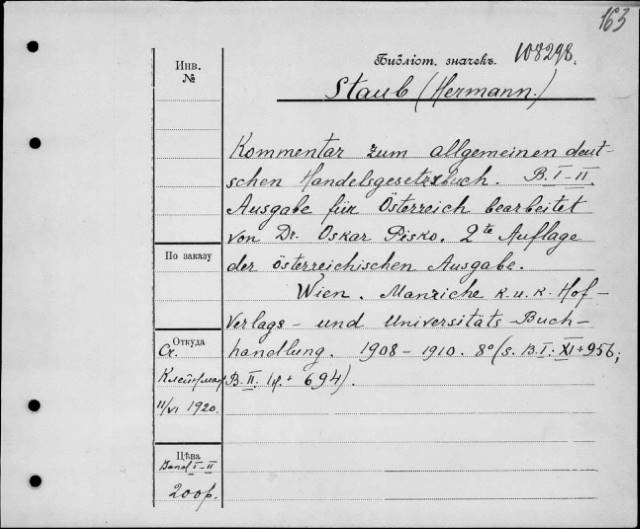 163
Библіот. значекъ. 108298.
Staub (Hermann.)
Инв.
№
Kommentar zum allgemeinen deut-
schen Handelsgesetzbuch. B. I–II.
Ausgabe für Österreich bearbeitet
von Dr. Oskar Pisko. 2te Auflage
der österreichischen Ausgabe.
Wien. Manzsche k. u. k. Hof-
Verlags- und Universitäts-Buch-
handlung. 1908–1910. 8° (S. B. I: XI + 956;
B. II: + 694).
По заказу
Откуда
Ст.
11/VI 1920.
Цѣна
Band I–II
200 р.